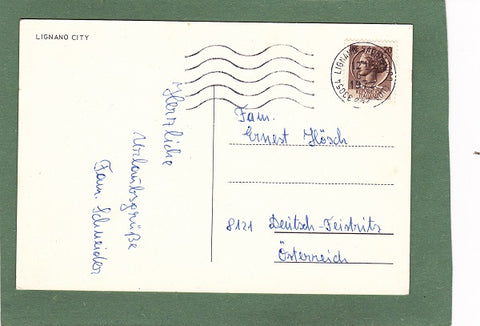 LIGNANO CITY
Herzliche
Urlaubsgrüße
Fam. Schneider
20
LIGNANO
Fam.
Ernest Hösch
8121 Deutsch-Feistritz
Österreich